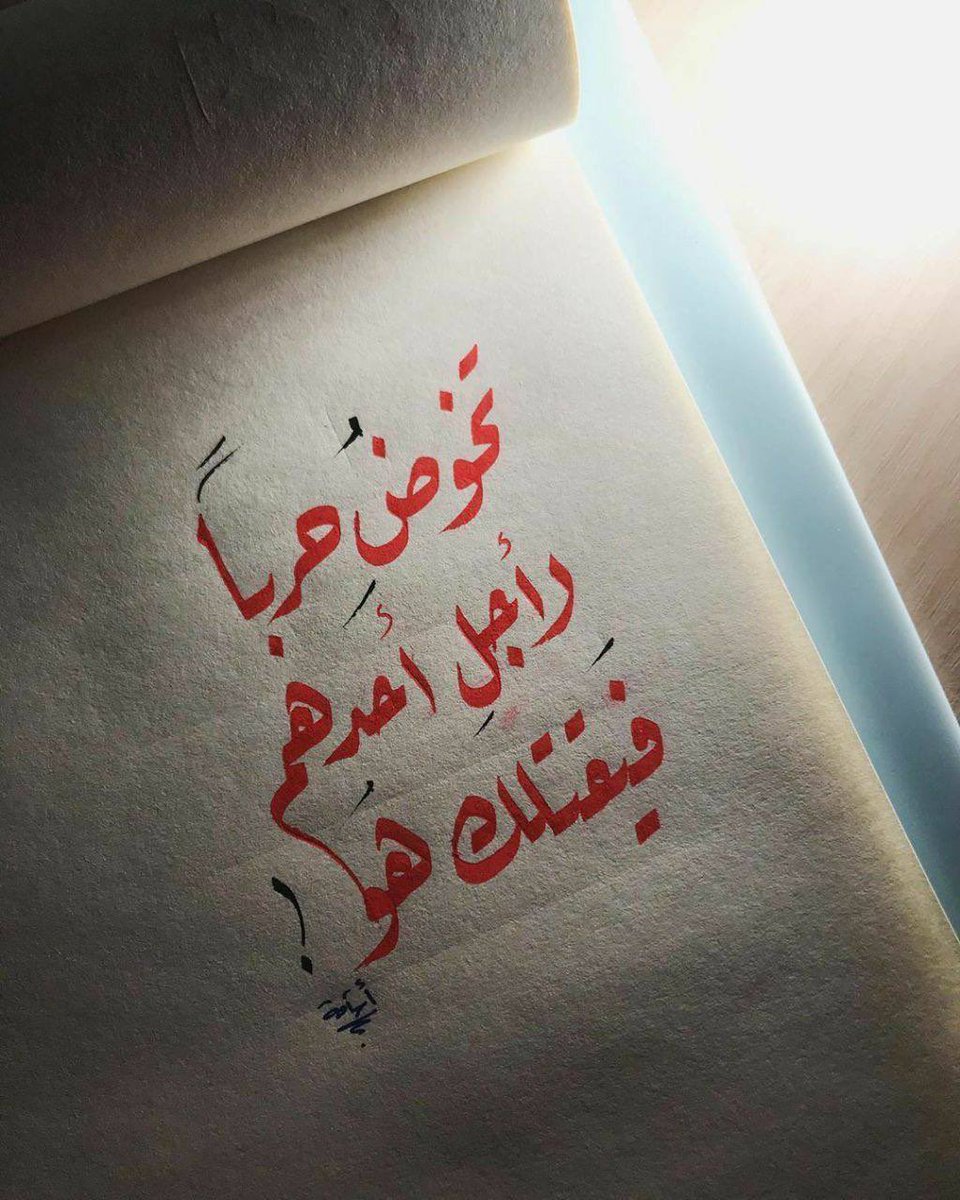 تخوضُ حرباً
لأجلِ أحدهم
فَيقتلك هوُ !